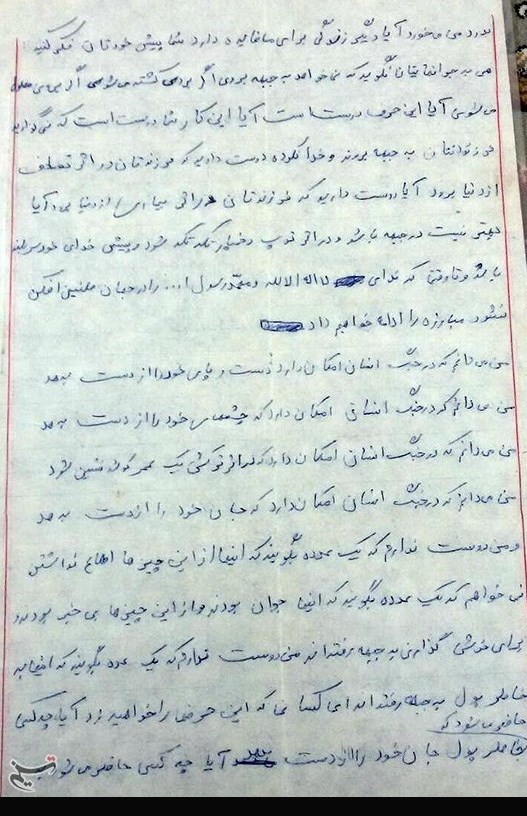 بدرد می خورد آیا دیگر زندگی برای ما فایده دارد شما پیش خودتان فکر کنید
می به جوانهایتان نگویید که نمی خواهد به جبهه بروی اگر بروی کشته می شوی اگر بروی معلول
می شوی آیا این حرف درست است آیا این کار شما درست است که نمی گذارید
فرزندانتان به جبهه بروند و خدا نکرده دوست دارید که فرزندتان در اثر تصادف
از دنیا برود آیا دوست دارید که فرزندتان در اثر بیماری از دنیا برود آیا
بهتر نیست در جبهه باشد و در اثر توپ و خمپاره تکه تکه شود و پیش خدای خود سربلند
باشد و تا وقتی که ندای لا اله الا الله و محمد رسول ا... را در جهان طنین افکن
نشود مبارزه را ادامه خواهیم داد
من می دانم که در جنگ انسان امکان دارد دست و پای خود را از دست بدهد
من می دانم که در جنگ انسان امکان دارد که چشمهای خود را از دست بدهد
من می دانم که در جنگ انسان امکان دارد که در اثر ترکش یک عمر گوشه نشین شود
من می دانم که در جنگ انسان امکان دارد که جان خود را از دست بدهد
و من دوست ندارم که یک عده بگویند که اینها از این چیزها اطلاع نداشتن
نمی خواهم که یک عده بگویند که اینها جوان بودند و از این چیزها بی خبر بودند و
برای خوشی گذرانی به جبهه رفته اند من دوست ندارم که یک عده بگویند که اینها به
خاطر پول به جبهه رفته اند ای کسانی که این حرفها را خواهید زد آیا چه کسی
حاضر می شود که
بخاطر پول جان خود را از دست بدهد آیا چه کسی حاضر می شود
تسنیم